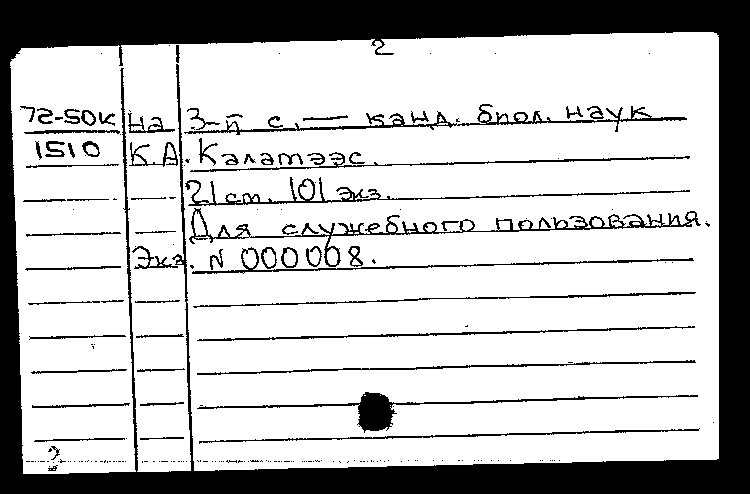 2
72-50к На 3-й с. — канд. биол. наук
1510 К.А. Калатээс.
21 ст. 101 экз.
Для служебного пользования.
Экз. N 000008.
2